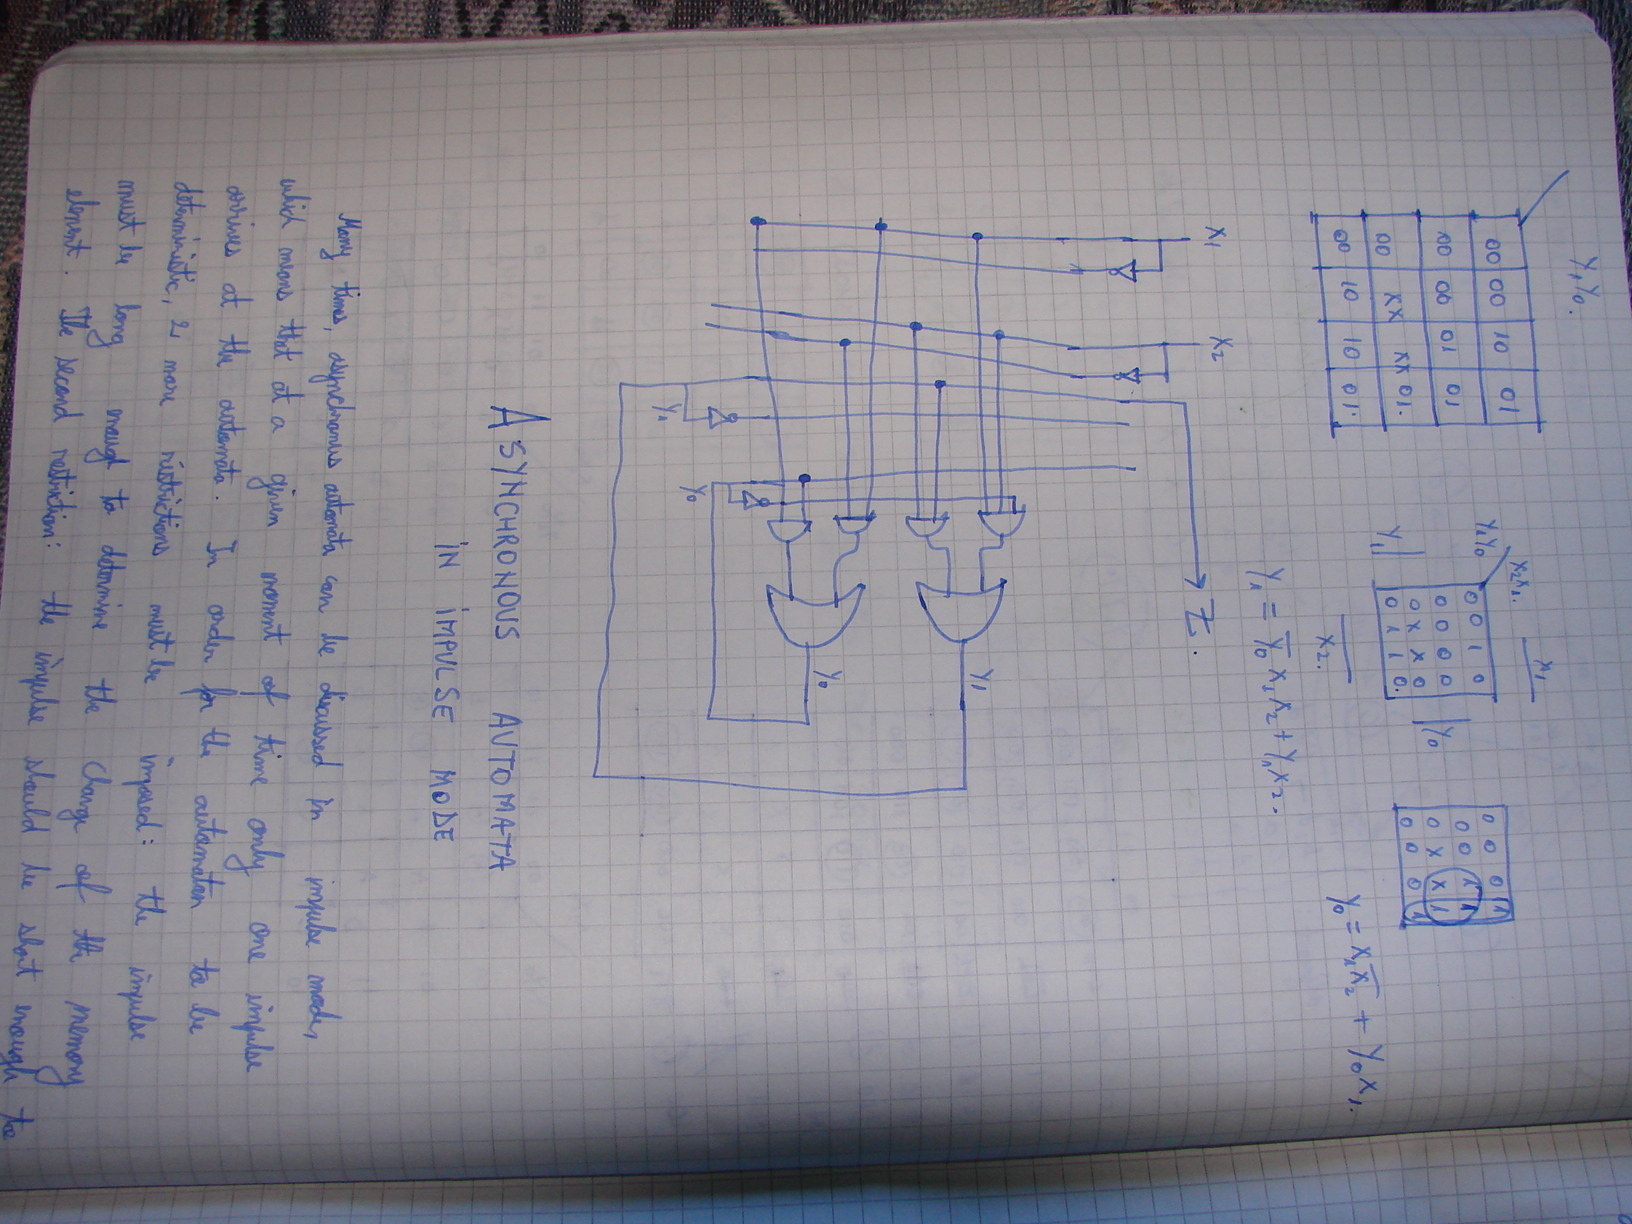 Y₁Y₀.
00 00 10 01
00 00 01 01
00 XX XX 01.
00 10 10 01.
X₂X₁. X₁
Y₁Y₀
0 0 1 0
0 0 0 0
0 X X 0
0 1 1 0.
Y₁ Y₀
X₂.
0 0 0 1
0 0 1 1
0 X X 1
0 0 0 1
Y₀ = X₁X̅₂ + Y₀X₁.
Y₁ = Y̅₀X₁X₂ + Y₁X₂.
X₁ X₂ Z.
Y₁
Y₀
Y₁ Y₀
ASYNCHRONOUS AUTOMATA
IN IMPULSE MODE
Many times, asynchronous automata can be discussed in impulse mode,
which means that at a given moment of time only one impulse
arrives at the automata. In order for the automaton to be
deterministic, 2 more restrictions must be imposed: the impulse
must be long enough to determine the change of the memory
element. The second restriction: the impulse should be short enough to